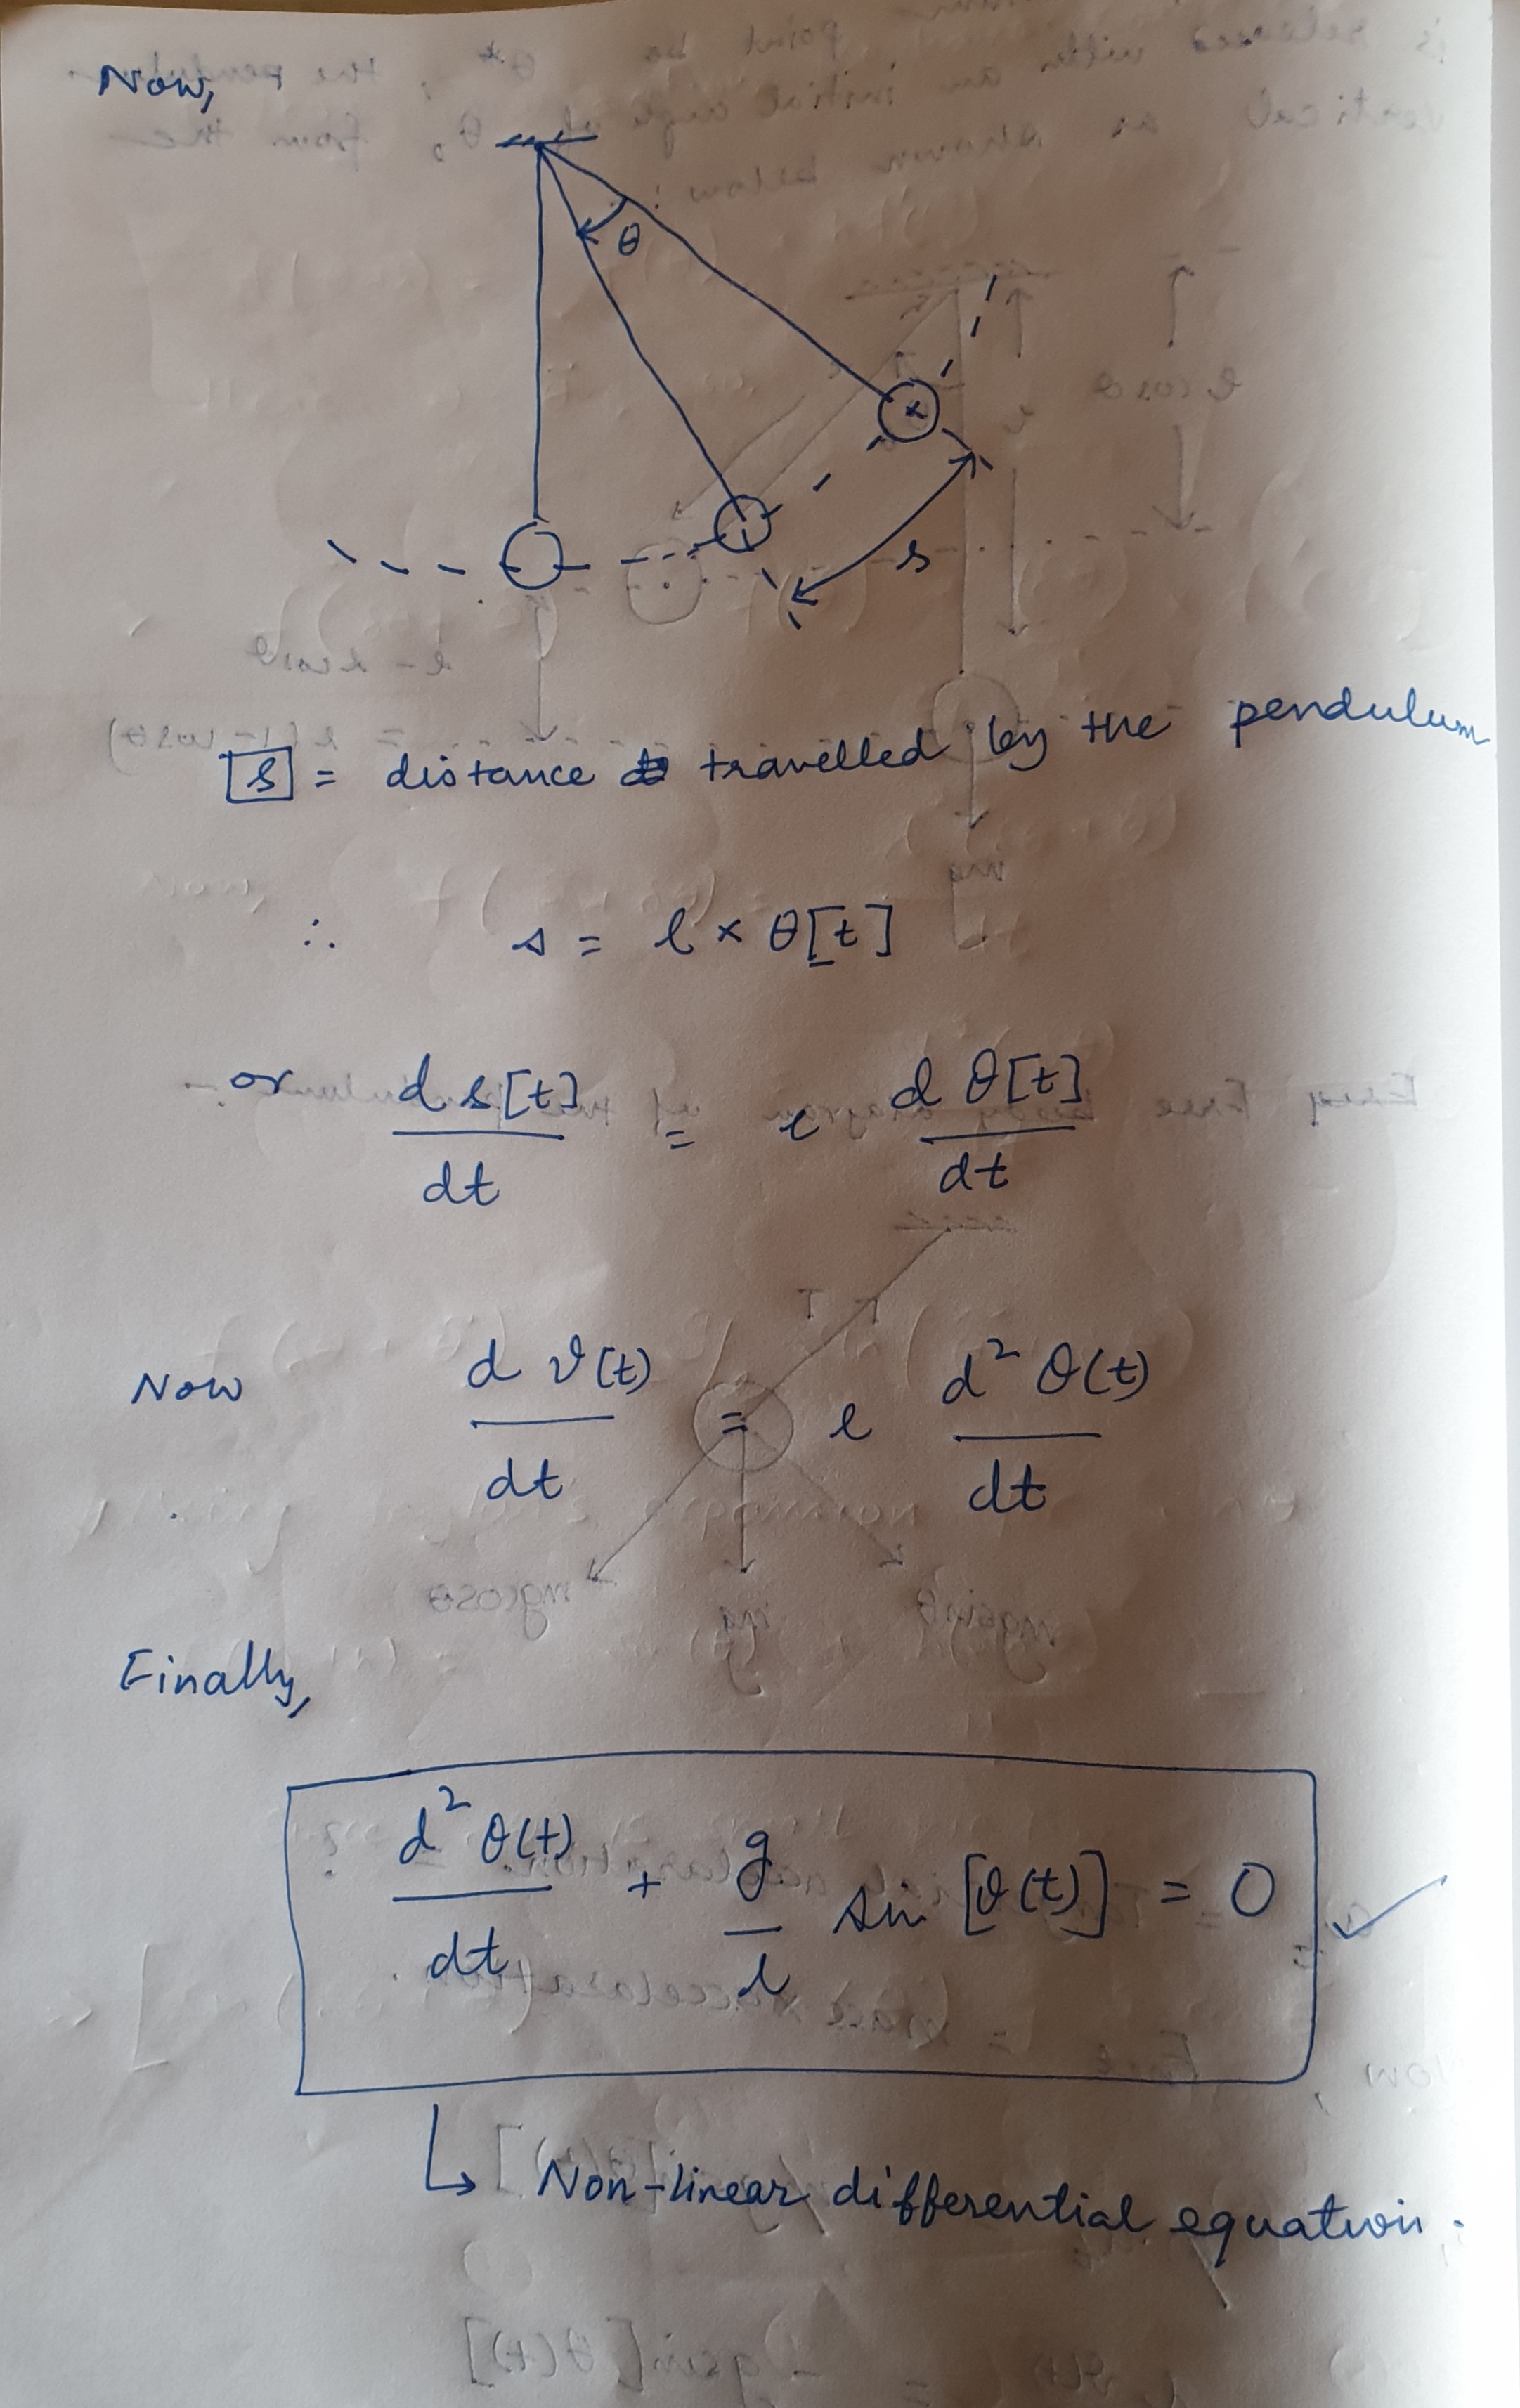 Now,
θ
s
s = distance travelled by the pendulum
∴ s = l × θ[t]
or d s[t] / dt = l d θ[t] / dt
Now d v(t) / dt = l d² θ(t) / dt
Finally,
d² θ(t) / dt + g / l sin [θ(t)] = 0 ✓
↳ Non-linear differential equation.